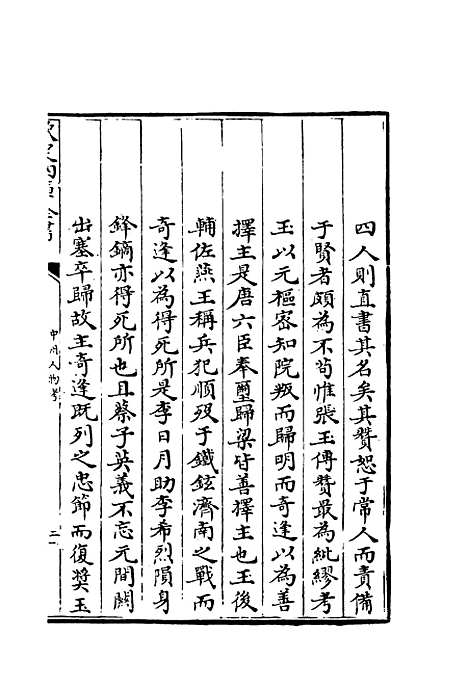 四人則直書其名矣其贊恕于常人而責備
于賢者頗為不苟惟張玉傳贊最為紕繆考
玉以元樞密知院叛而歸明而奇逢以為善
擇主是唐六臣奉璽歸梁皆善擇主也玉後
輔佐燕王稱兵犯順殁于鐵鉉濟南之戰而
奇逢以為得死所是李日月助李希烈隕身
鋒鏑亦得死所也且蔡子英義不忘元間關
出塞卒歸故主奇逢既列之忠節而復奬玉
欽定四庫全書
中州人物考